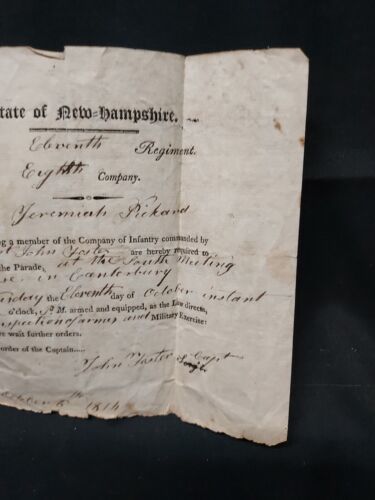 tate of New-Hampshire.
Eleventh Regiment.
Eighth Company.
Jeremiah Pickard
ng a member of the Company of Infantry commanded by
John Foster are hereby required to
the Parade, at the South Meeting
se in Canterbury
urday the Eleventh day of October instant
o'clock, P. M. armed and equipped, as the Law directs,
nspection of arms and Military Exercise:
re wait further orders.
order of the Captain.....
John Foster
1814